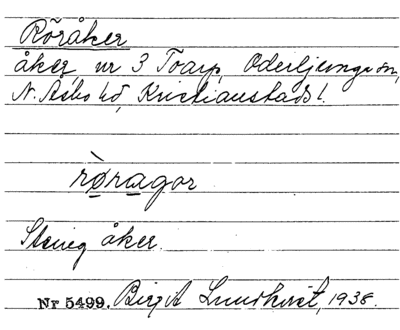 Röråker
åker, nr 3 Toarp, Oderljunga sn,
N. Åsbo hd, Kristianstads l.
rø̀ragor
Stenig åker.
Nr 5499. Birgit Lundkvist, 1938.